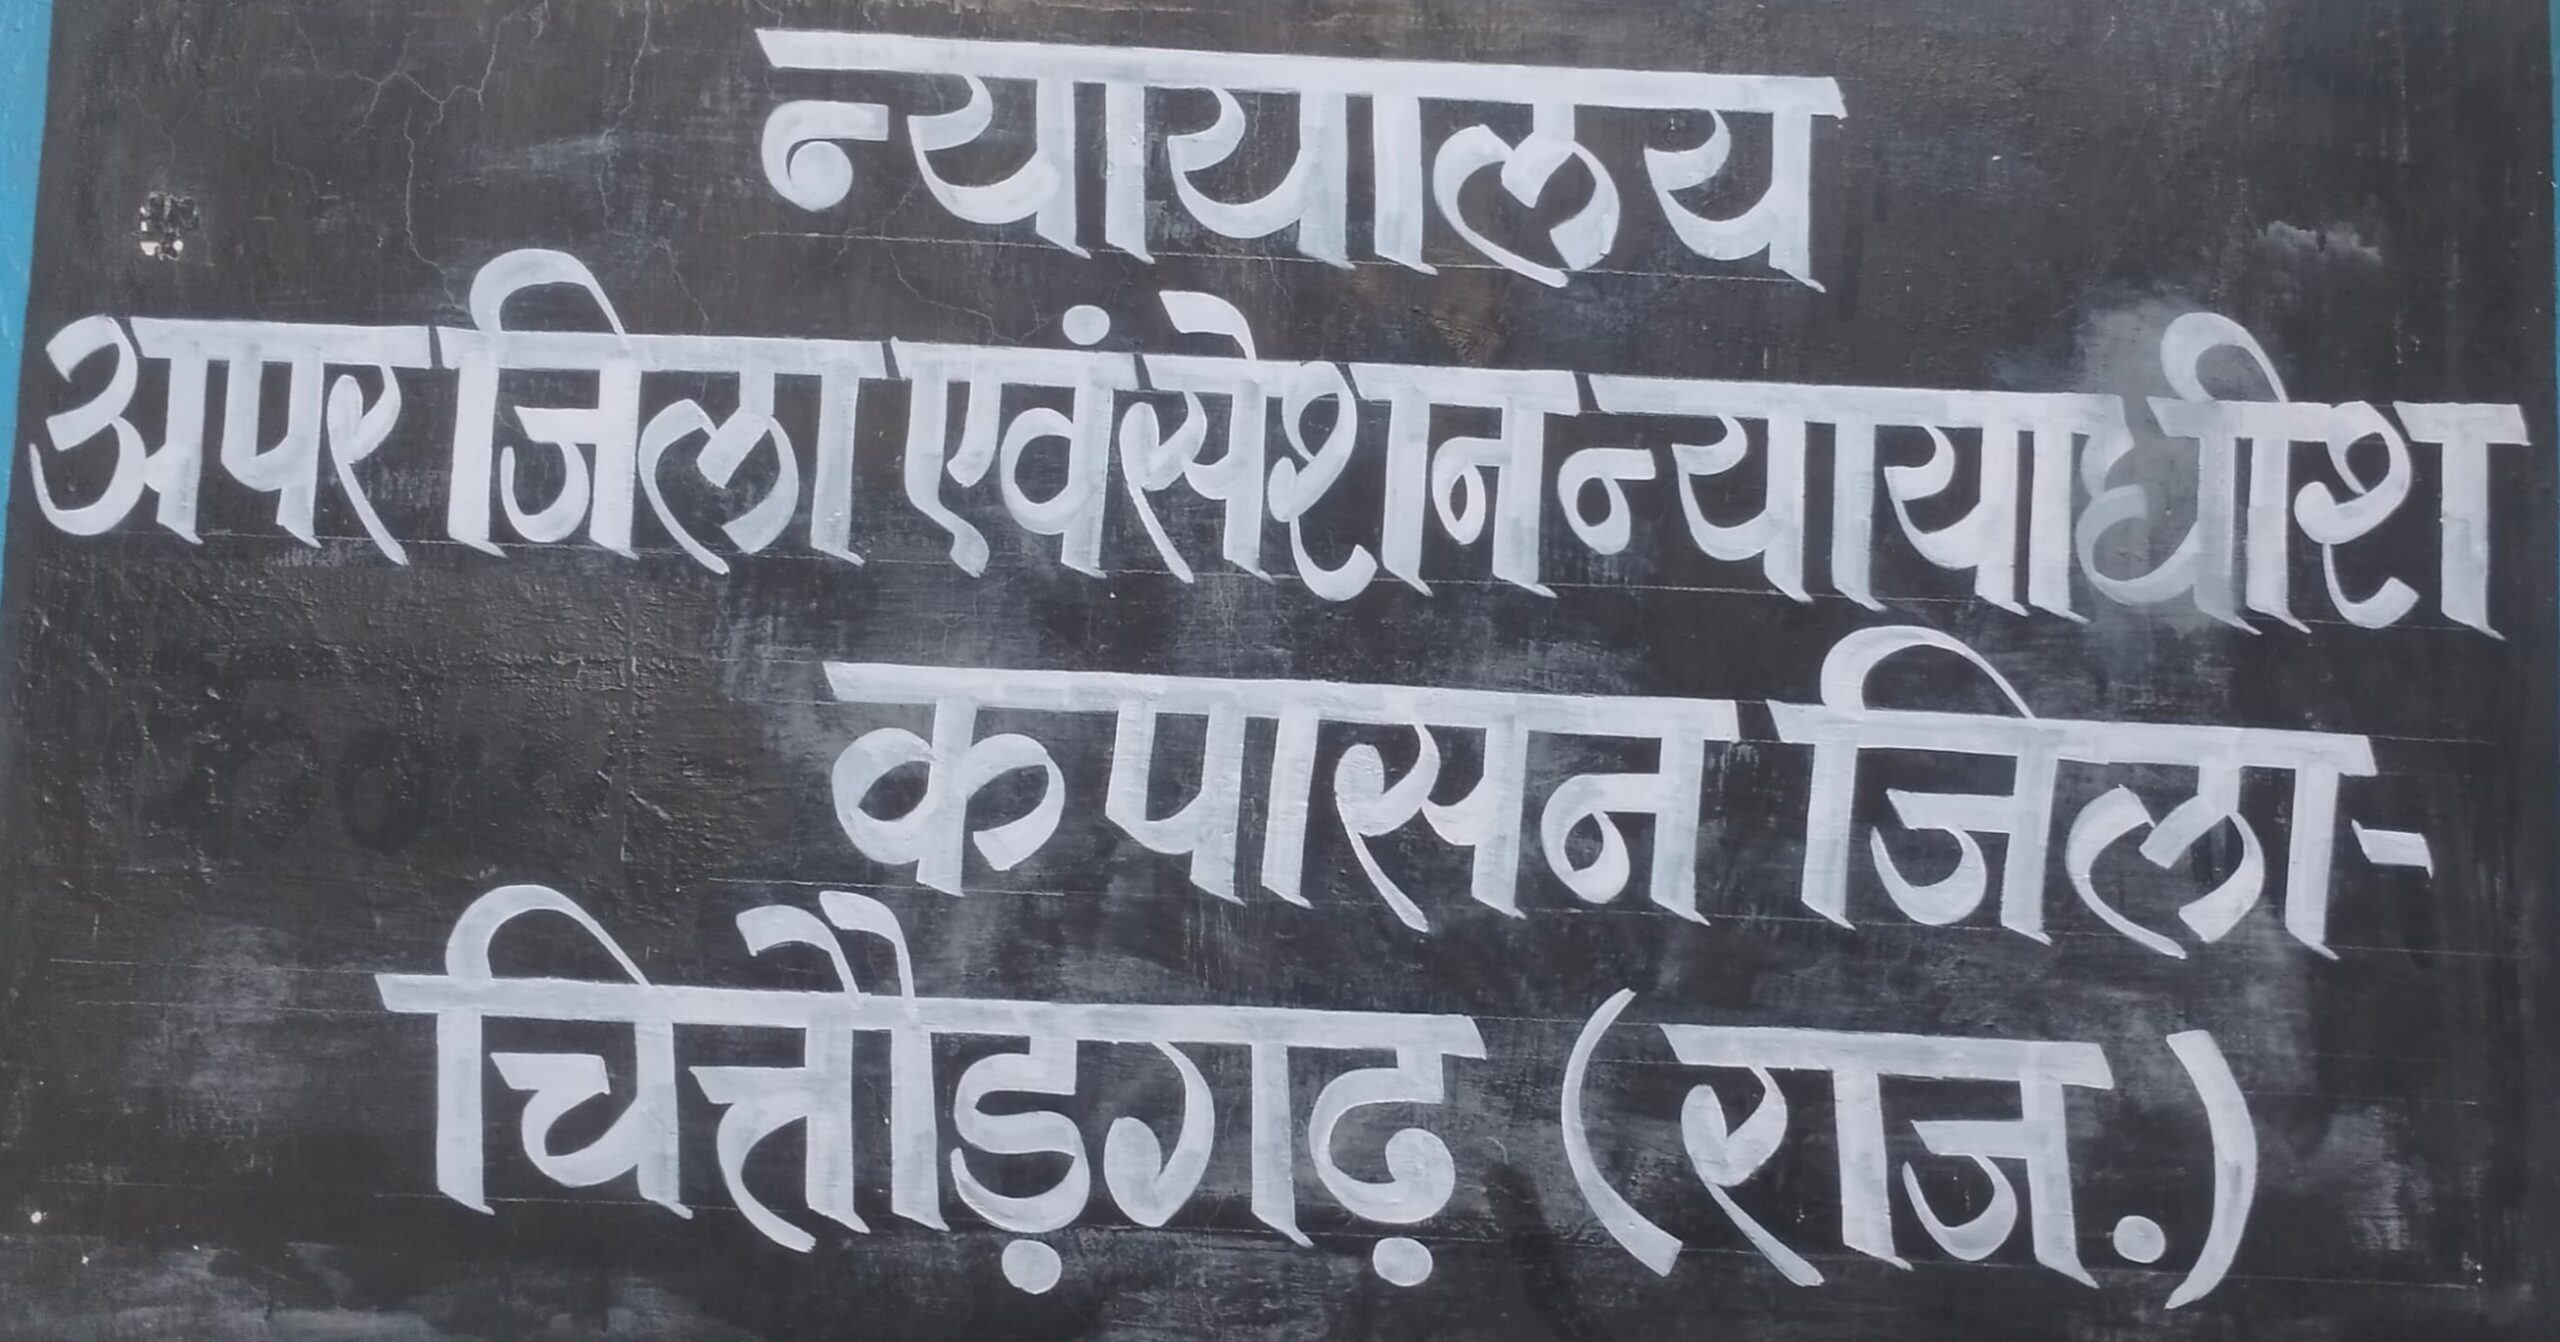 न्यायालय
अपर जिला एवं सेशन न्यायाधीश
कपासन जिला-
चित्तौड़गढ़ (राज.)